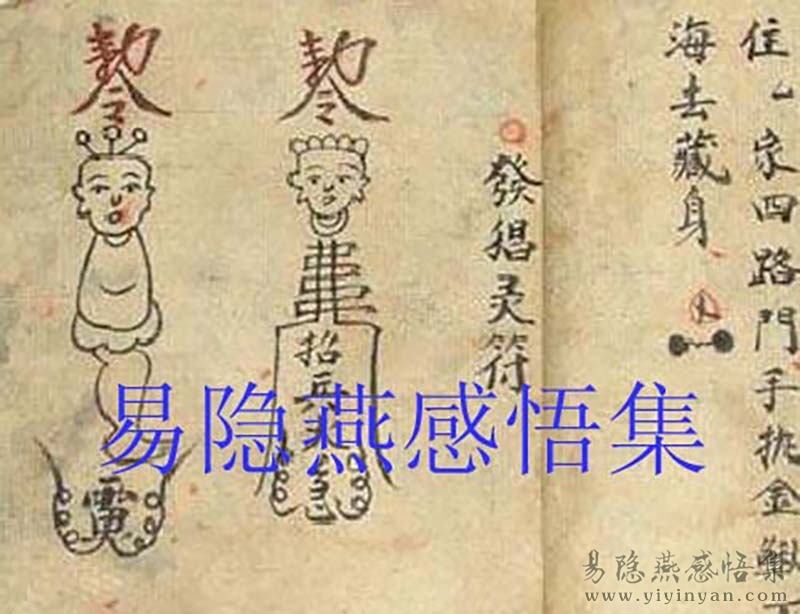 住一家四路門手执金
海去藏身
發猖灵符
勅令
招兵
急
勅令
易隐燕感悟集
易隐燕感悟集
www.yiyinyan.com